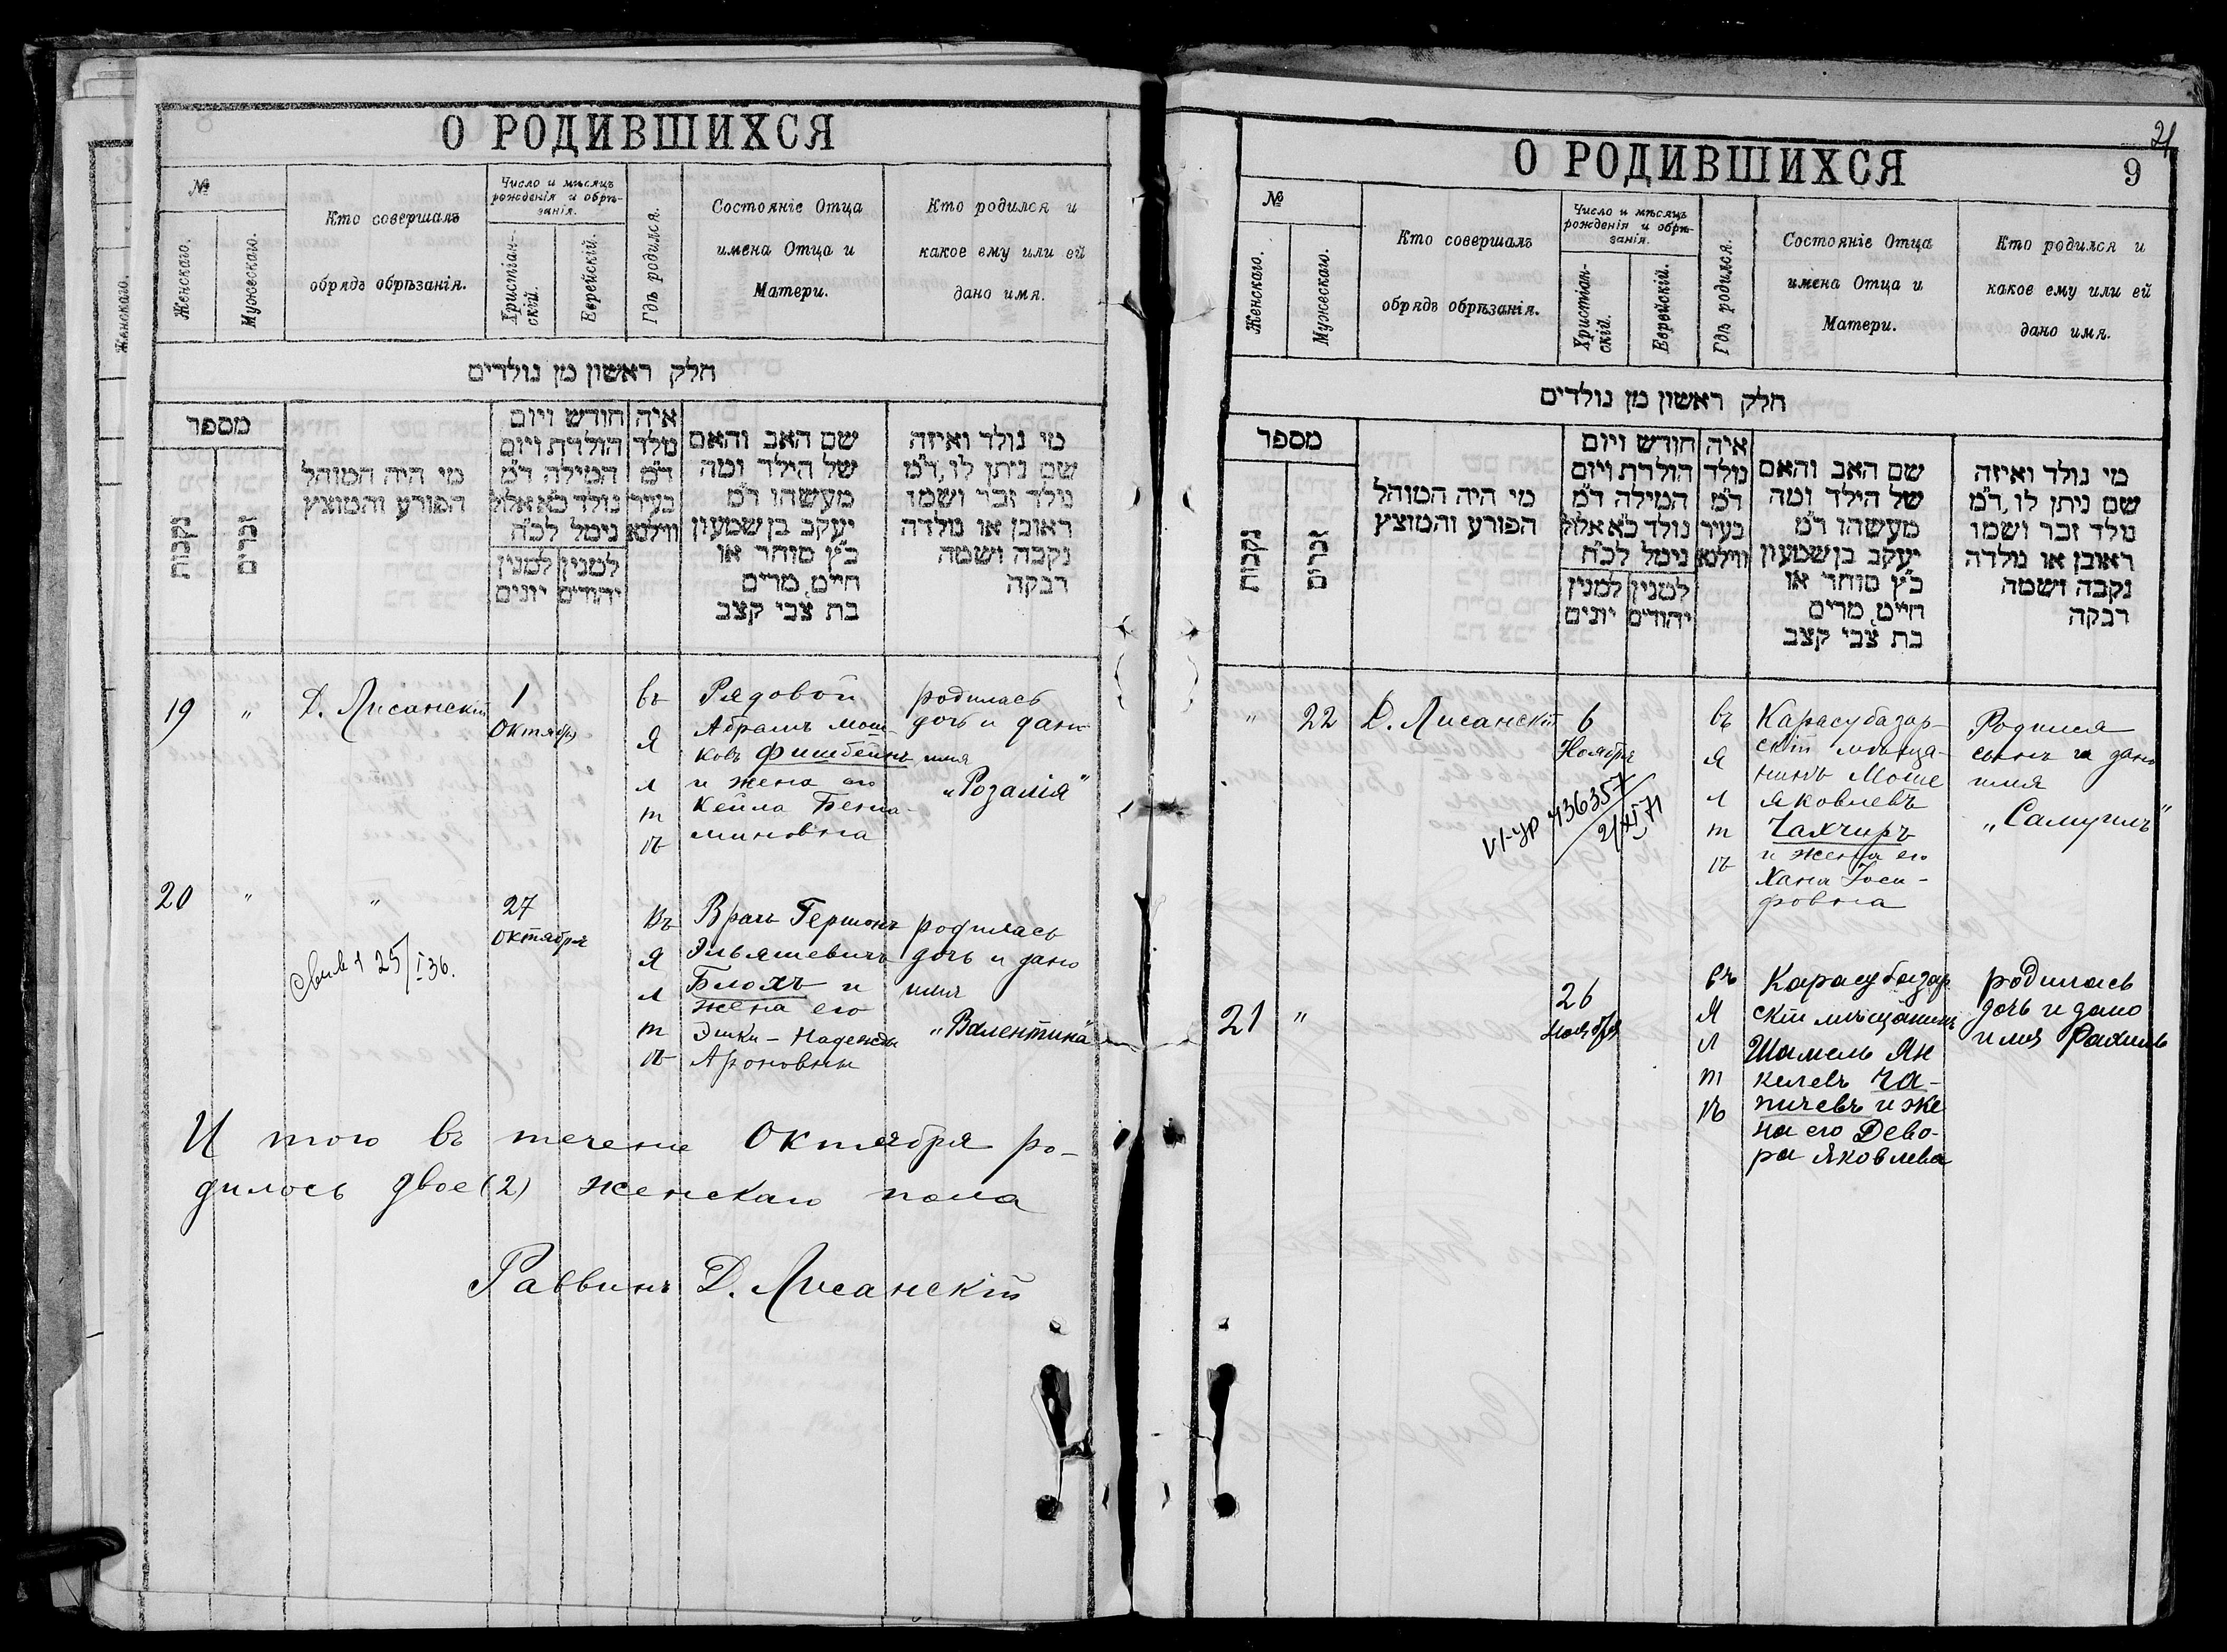 О РОДИВШИХСЯ
№
Женскаго.
Мужескаго.
Кто совершалъ
обрядъ обрѣзанія.
Число и мѣсяцъ
рожденія и обрѣ-
занія.
Христіан-
скій.
Еврейскій.
Гдѣ родился.
Состояніе Отца
имена Отца и
Матери.
Кто родился и
какое ему или ей
дано имя.
חלק ראשון מן נולדים
מספר
נקבות
זכרים
מי היה המוהל
הפורע והמוצץ
חודש ויום
הולדת ויום
המילה ד״מ
נולד כ״א אלול
נימל לכ״ח
למנין למנין
יהודים יונים
איה
נולד
ד״מ
בעיר
ווילנא
שם האב והאם
של הילד ומה
מעשהו ד״מ
יעקב בן שמעון
כ״ץ סוחר או
חייט, מרים
בת צבי קצב
מי נולד ואיזה
שם ניתן לו, ד״מ
נולד זכר ושמו
ראובן או נולדה
נקבה ושמה
רבקה
19 " Д. Лисанскій
1
Октября
въ
Я
л
т
ѣ
Рядовой
Абрамъ Мош-
ковъ Фишбейнъ
и жена его
Кейла Беніа-
миновна
родилась
дочь и дано
имя
„Розалія"
20 " "
27
Октября
Въ
Я
л
т
ѣ
Врачъ Гершонъ
Эльяшевичъ
Блохъ и
жена его
Эшки-Надежды
Ароновны
родилась
дочь и дано
имя
„Валентина"
25/I 36.
И того въ теченіе Октября ро-
дилось двое (2) женскаго пола
Раввинъ Д. Лисанскій
21
О РОДИВШИХСЯ 9
№
Женскаго.
Мужескаго.
Кто совершалъ
обрядъ обрѣзанія.
Число и мѣсяцъ
рожденія и обрѣ-
занія.
Христіан-
скій.
Еврейскій.
Гдѣ родился.
Состояніе Отца
имена Отца и
Матери.
Кто родился и
какое ему или ей
дано имя.
חלק ראשון מן נולדים
מספר
נקבות
זכרים
מי היה המוהל
הפורע והמוצץ
חודש ויום
הולדת ויום
המילה ד״מ
נולד כ״א אלול
נימל לכ״ח
למנין למנין
יהודים יונים
איה
נולד
ד״מ
בעיר
ווילנא
שם האב והאם
של הילד ומה
מעשהו ד״מ
יעקב בן שמעון
כ״ץ סוחר או
חייט, מרים
בת צבי קצב
מי נולד ואיזה
שם ניתן לו, ד״מ
נולד זכר ושמו
ראובן או נולדה
נקבה ושמה
רבקה
" 22 Д. Лисанскій
6
Ноября
въ
Я
л
т
ѣ
Карасубазар-
скій мѣща-
нинъ Моше
Яковлевъ
Чахчиръ
и жена его
Хана Іоси-
фовна
Родился
сынъ и дано
имя
„Самуилъ"
VI-УР 436357
2/XI 71
21 "
26
Ноября
въ
Я
л
т
ѣ
Карасубазар
скій мѣщанинъ
Шамель Ян
келевъ Ча-
пичевъ и же
на его Дево-
ра Яковлева
родилась
дочь и дано
имя Рахиль